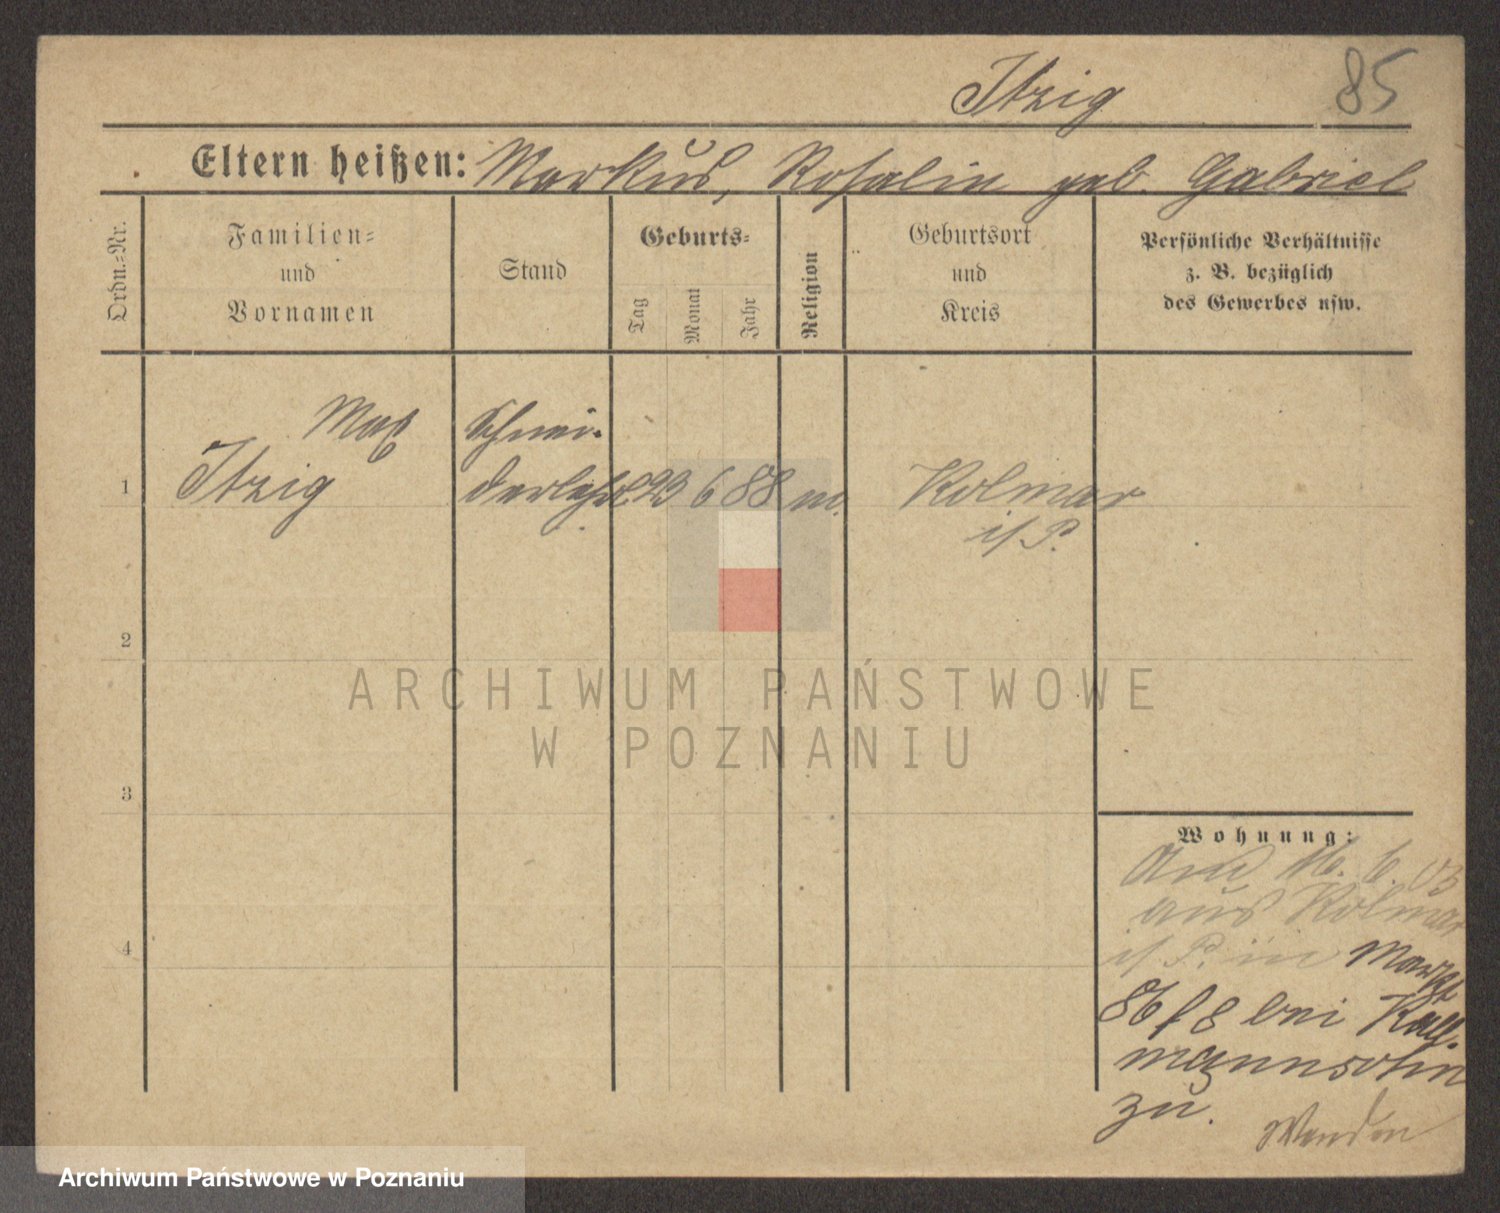 Itzig 85
Eltern heißen: Markus, Rosalin geb. Gabriel
Ordn.-Nr.
Familien-
und
Vornamen
Stand
Geburts-
Tag
Monat
Jahr
Religion
Geburtsort
und
Kreis
Persönliche Verhältnisse
z. B. bezüglich
des Gewerbes usw.
Max Schnei-
1 Itzig derlehrl. 23 6 88 m. Kolmar
i/P.
2
3
4
ARCHIWUM PAŃSTWOWE
W POZNANIU
Wohnung:
16. 6. 03
aus Kolmar
i/P. in Markt
86 f 8 bei
mannsohn
zu.
Wenden
Archiwum Państwowe w Poznaniu